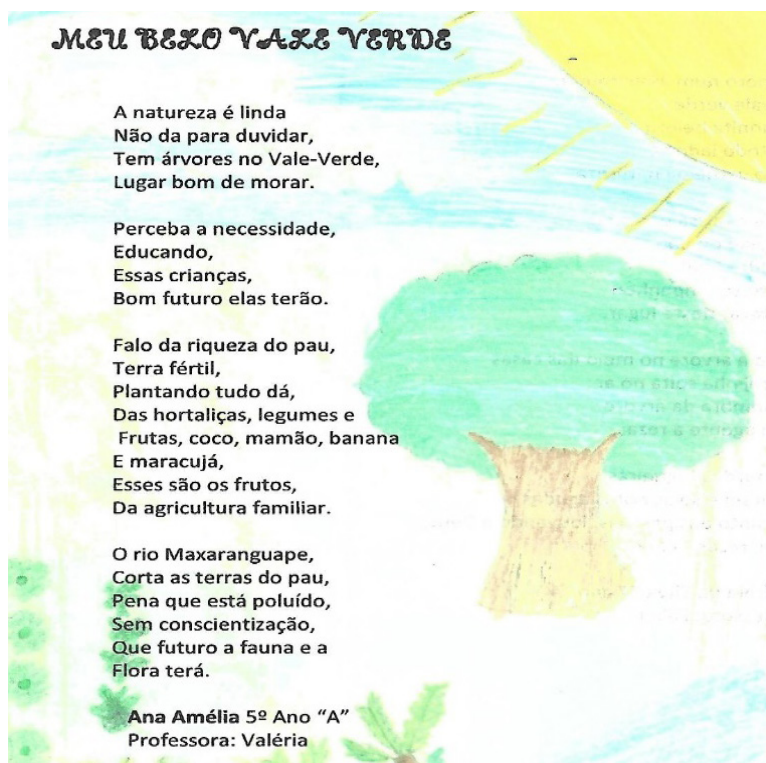 MEU BELO VALE VERDE
A natureza é linda
Não da para duvidar,
Tem árvores no Vale-Verde,
Lugar bom de morar.
Perceba a necessidade,
Educando,
Essas crianças,
Bom futuro elas terão.
Falo da riqueza do pau,
Terra fértil,
Plantando tudo dá,
Das hortaliças, legumes e
Frutas, coco, mamão, banana
E maracujá,
Esses são os frutos,
Da agricultura familiar.
O rio Maxaranguape,
Corta as terras do pau,
Pena que está poluído,
Sem conscientização,
Que futuro a fauna e a
Flora terá.
Ana Amélia 5º Ano “A”
Professora: Valéria